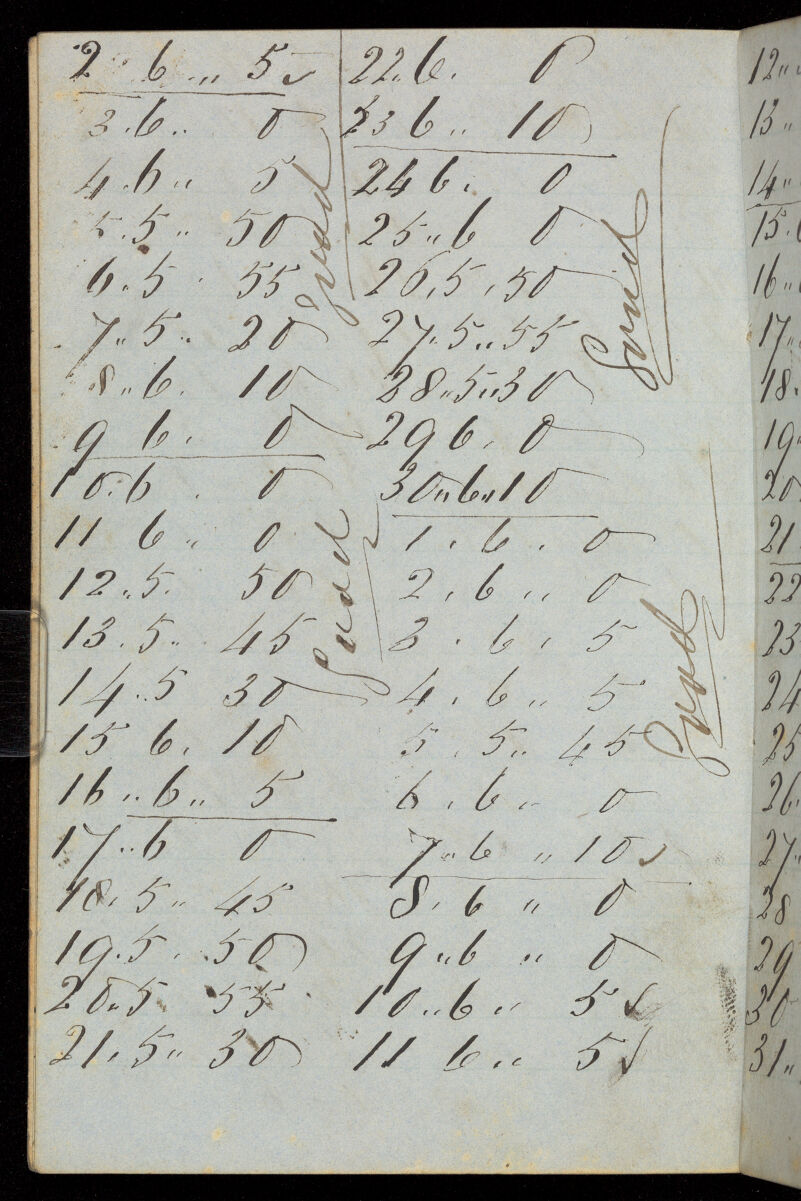 2 6 " 5 ✓
3 . 6 " 0
4 . 6 " 5
5 . 5 " 50
6 . 5 . 55
7 " 5 " 20
8 " 6 . 10
9 6 . 0
10 . 6 . 0
11 6 " 0
12 " 5 . 50
13 . 5 " 45
14 " 5 30
15 6 . 10
16 " 6 " 5
17 " 6 0
18 . 5 " 45
19 . 5 . 50
20 " 5 55
21 . 5 " 30
22 " 6 . 0
23 6 " 10
24 6 . 0
25 " 6 0
26 . 5 . 50
27 . 5 " 55
28 " 5 " 30
29 6 . 0
30 " 6 " 10
1 . 6 . 0
2 . 6 " 0
3 . 6 . 5
4 . 6 " 5
5 . 5 " 45
6 . 6 " 0
7 " 6 " 10 ✓
8 . 6 " 0
9 " 6 " 0
10 " 6 " 5 ✓
11 6 " 5 ✓
12 "
13 "
14 "
15 .
16 "
17 "
18 .
19 "
20
21
22
23
24
25
26
27 "
28
29
30
31 "